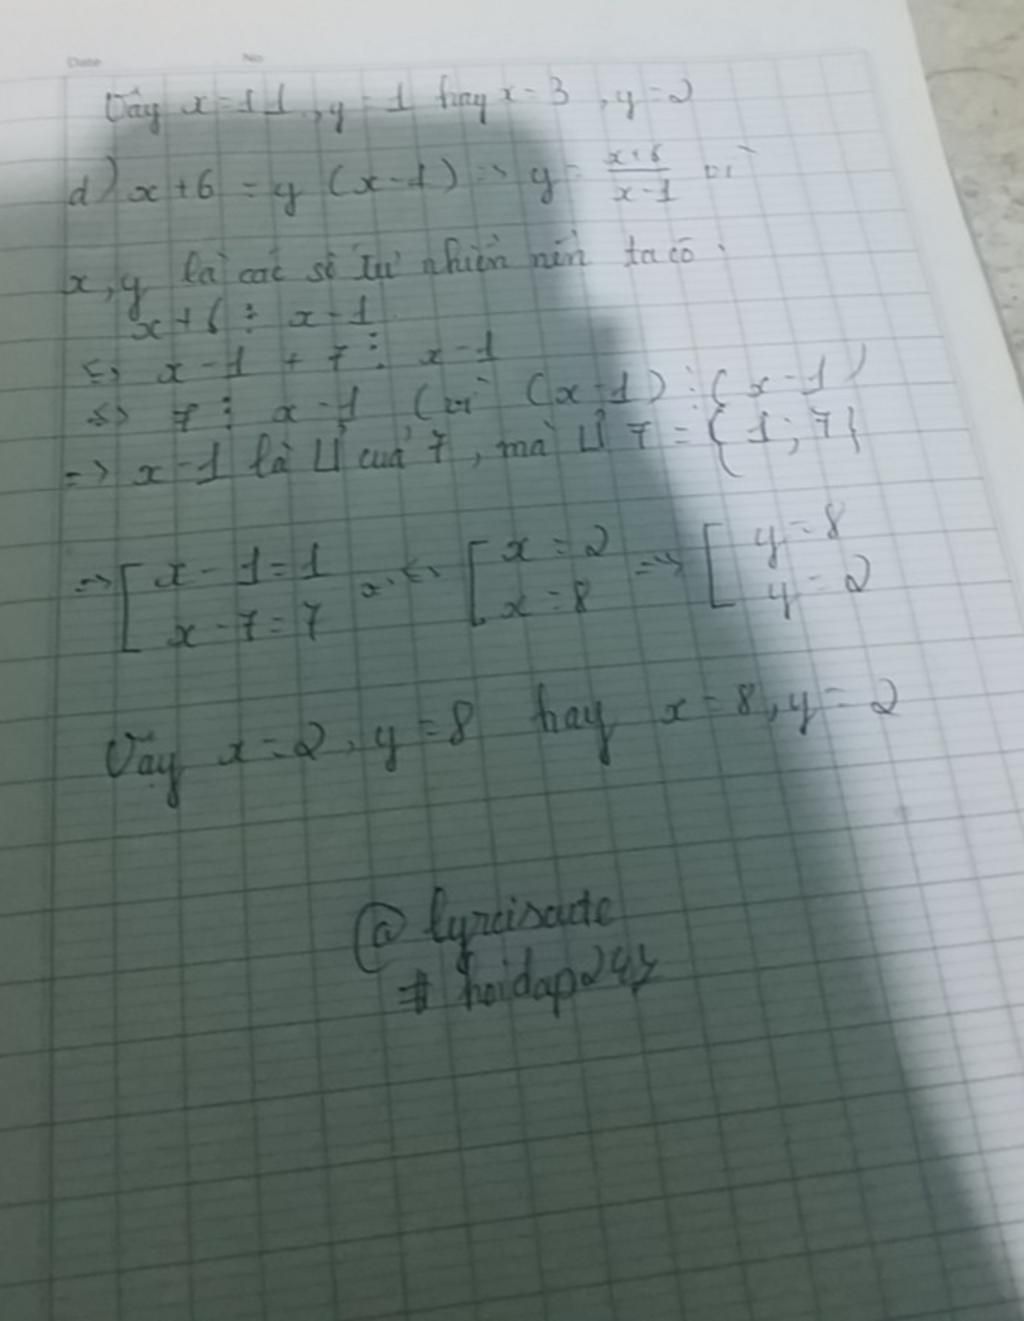 Date No
Vậy x = 11, y = 1 hay x = 3, y = 2
d) x + 6 = y (x - 1) => y = \frac{x+6}{x-1} vì
x, y là các số tự nhiên nên ta có :
x + 6 ⋮ x - 1
<=> x - 1 + 7 ⋮ x - 1
<=> 7 ⋮ x - 1 (vì (x - 1) ⋮ (x - 1)
=> x - 1 là Ư của 7, mà Ư 7 = { 1 ; 7 }
=> [ x - 1 = 1 <=> [ x = 2 => [ y = 8
x - 7 = 7 x = 8 y = 2
Vậy x = 2, y = 8 hay x = 8, y = 2
@
# hoidap247